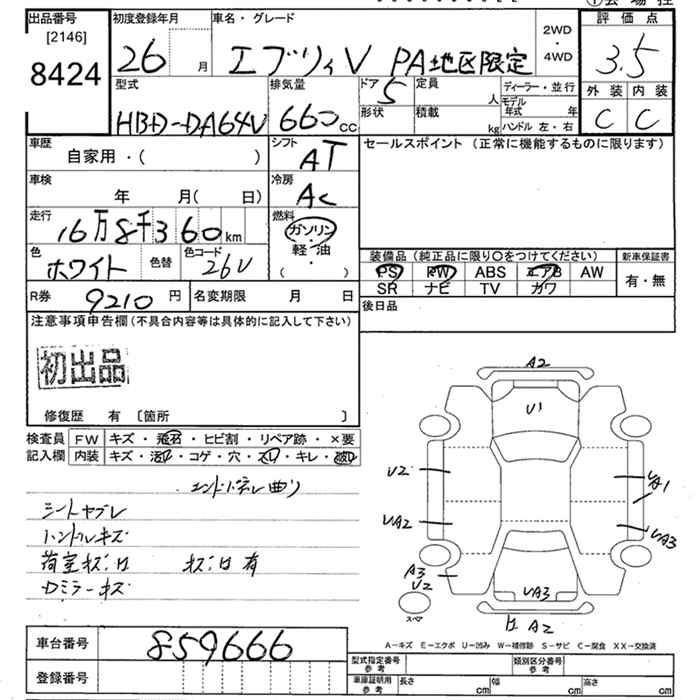 ①会場控
出品番号 初度登録年月 車名・グレード 評価点
[2146]
8424
26 月 エブリィV PA地区限定 2WD・4WD 3.5
型式 排気量 ドア 定員 ディーラー・並行 外装 内装
HBD-DA64V 660cc 5 人 モデル年式 年 C C
形状 積載 kg ハンドル 左・右
車歴 シフト セールスポイント (正常に機能するものに限ります)
自家用・( ) AT
車検 冷房
年 月( 日) AC
走行 燃料
16万8千360km ガソリン・軽油
( )
色 色替 色コード 装備品 (純正品に限り〇をつけてください) 新車保証書
ホワイト 26U PS PW ABS エアB AW 有・無
SR ナビ TV カワ
R券 9210円 名変期限 月 日 後日品
注意事項申告欄(不具合内容等は具体的に記入して下さい)
初出品
修復歴 有 〔箇所 〕
検査員 FW キズ・飛石・ヒビ割・リペア跡・×要
記入欄 内装 キズ・汚れ・コゲ・穴・スレ・キレ・破れ
エンドパネル曲り
シートヤブレ
ハンドルキズ
荷室キズ凹 キズ凹有
Dミラーキズ
A2
U1
U2 UA1
UA2 UA3
A3
U2
UA3
スペア
凹 A2
A-キズ E-エクボ U-凹み W-補修跡 S-サビ C-腐食 XX-交換済
車台番号 859666
型式指定番号 参考 類別区分番号 参考
登録番号 車庫証明用 参考 長さ cm 幅 cm 高さ cm